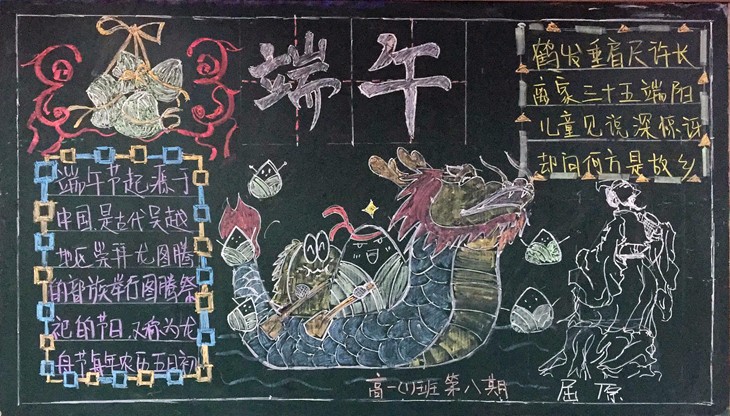 端午
鹤发垂肩尺许长
离家三十五端阳
儿童见说深惊讶
却问何方是故乡
端午节起源于
中国,是古代吴越
地区崇拜龙图腾
的部族举行图腾祭
祀的节日,又称为龙
舟节每年农历五日初
高一(1)班第八期
屈原